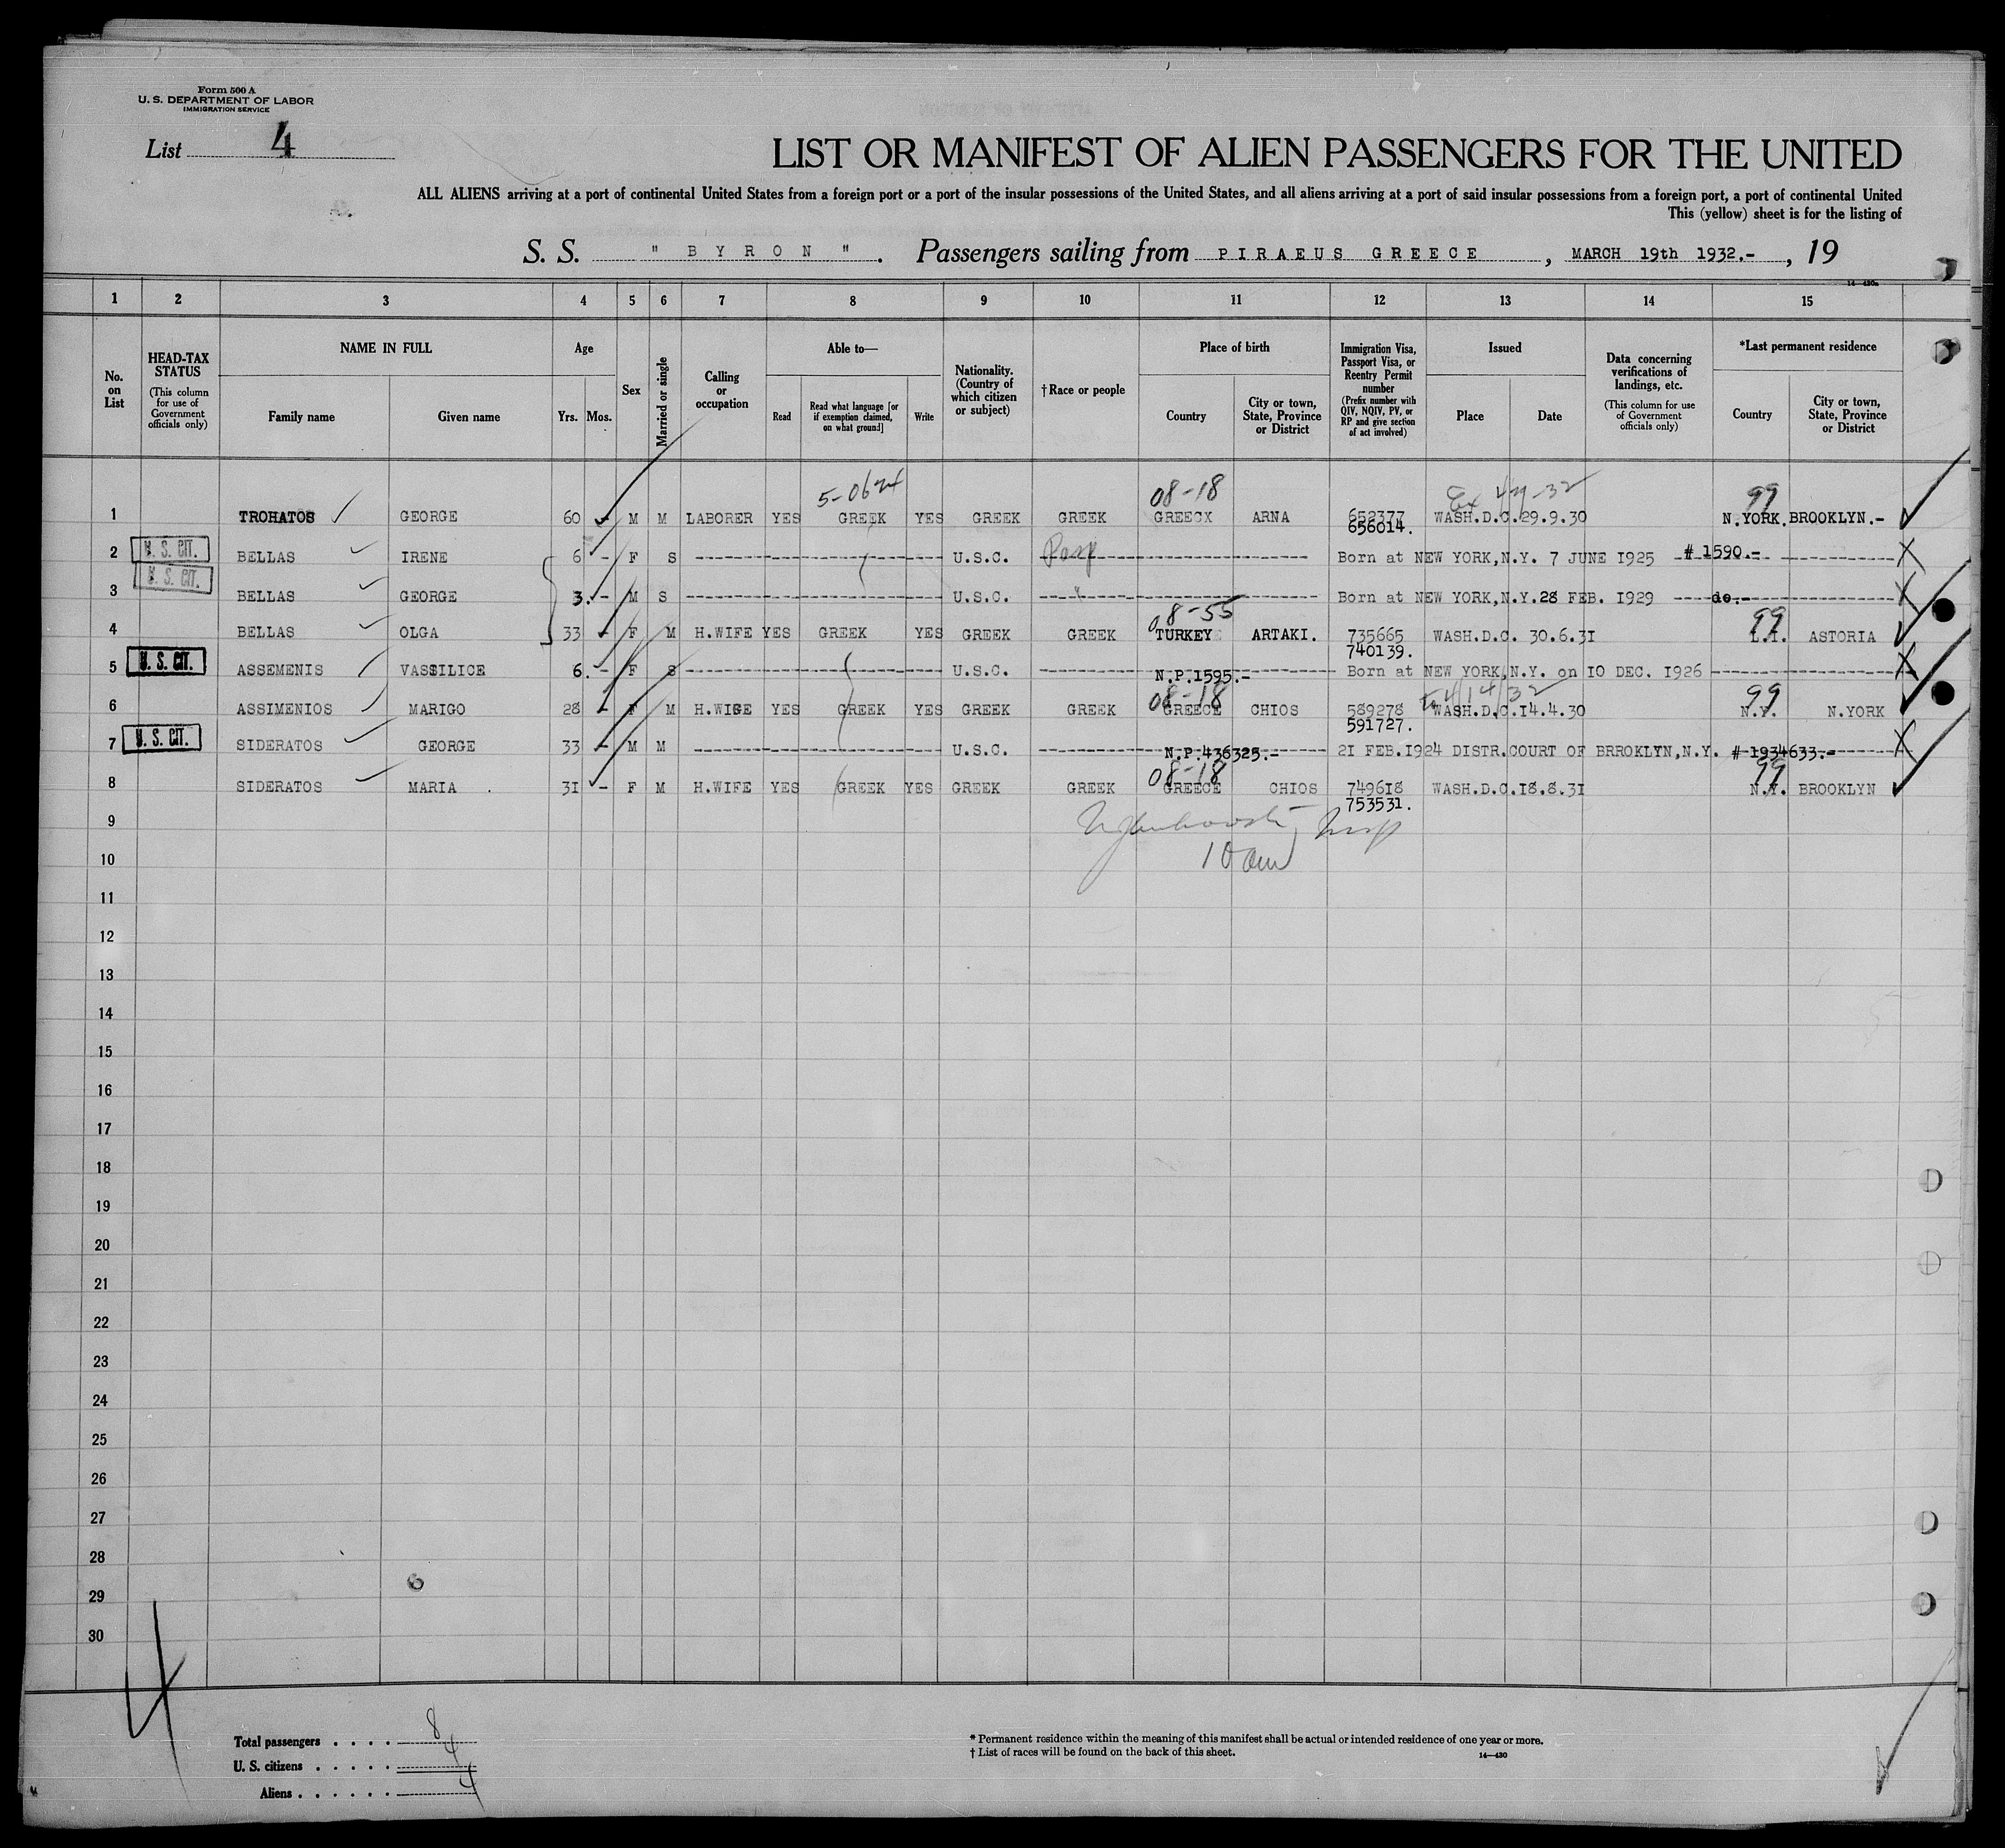 Form 500 A
U. S. DEPARTMENT OF LABOR
IMMIGRATION SERVICE
List 4
LIST OR MANIFEST OF ALIEN PASSENGERS FOR THE UNITED
ALL ALIENS arriving at a port of continental United States from a foreign port or a port of the insular possessions of the United States, and all aliens arriving at a port of said insular possessions from a foreign port, a port of continental United
This (yellow) sheet is for the listing of
S. S. " B Y R O N " . Passengers sailing from PIRAEUS GREECE , MARCH 19th 1932.- , 19
14—430a
1 2 3 4 5 6 7 8 9 10 11 12 13 14 15
No. on List
HEAD-TAX STATUS
(This column for use of Government officials only)
NAME IN FULL
Family name
Given name
Age
Yrs.
Mos.
Sex
Married or single
Calling or occupation
Able to—
Read
Read what language [or if exemption claimed, on what ground]
Write
Nationality. (Country of which citizen or subject)
† Race or people
Place of birth
Country
City or town, State, Province or District
Immigration Visa, Passport Visa, or Reentry Permit number
(Prefix number with QIV, NQIV, PV, or RP and give section of act involved)
Issued
Place
Date
Data concerning verifications of landings, etc.
(This column for use of Government officials only)
*Last permanent residence
Country
City or town, State, Province or District
08-18 99
1 TROHATOS GEORGE 60 - M M LABORER YES GREEK YES GREEK GREEK GREECX ARNA 652377 WASH.D.C.29.9.30 N.YORK.BROOKLYN.-
656014.
2 U. S. CIT. BELLAS IRENE 6 - F S U.S.C. Born at NEW YORK,N.Y. 7 JUNE 1925 # 1590.-
3 U. S. CIT. BELLAS GEORGE 3.- M S U.S.C. " Born at NEW YORK,N.Y.28 FEB. 1929 do.-
08-55 99
4 BELLAS OLGA 33 - F M H.WIFE YES GREEK YES GREEK GREEK TURKEY ARTAKI. 735665 WASH.D.C. 30.6.31 L.I. ASTORIA
740139.
5 U. S. CIT. ASSEMENIS VASSILICE 6.- F S U.S.C. N.P.1595.- Born at NEW YORK,N.Y. on 10 DEC. 1926
08-18 4/14/32 99
6 ASSIMENIOS MARIGO 28 - F M H.WIGE YES GREEK YES GREEK GREEK GREECE CHIOS 589278 WASH.D.C.14.4.30 N.Y. N.YORK
591727.
7 U. S. CIT. SIDERATOS GEORGE 33 - M M U.S.C. N.P.436325.- 21 FEB.1924 DISTR.COURT OF BRROKLYN,N.Y. # 1934633.-
08-18 99
8 SIDERATOS MARIA . 31 - F M H.WIFE YES GREEK YES GREEK GREEK GREECE CHIOS 749618 WASH.D.C.18.8.31 N.Y. BROOKLYN
753531.
9
10
11
12
13
14
15
16
17
18
19
20
21
22
23
24
25
26
27
28
29
30
4
Total passengers . . . . 8
U. S. citizens . . . . . 4
Aliens . . . . . . 4
* Permanent residence within the meaning of this manifest shall be actual or intended residence of one year or more.
† List of races will be found on the back of this sheet.
14—430